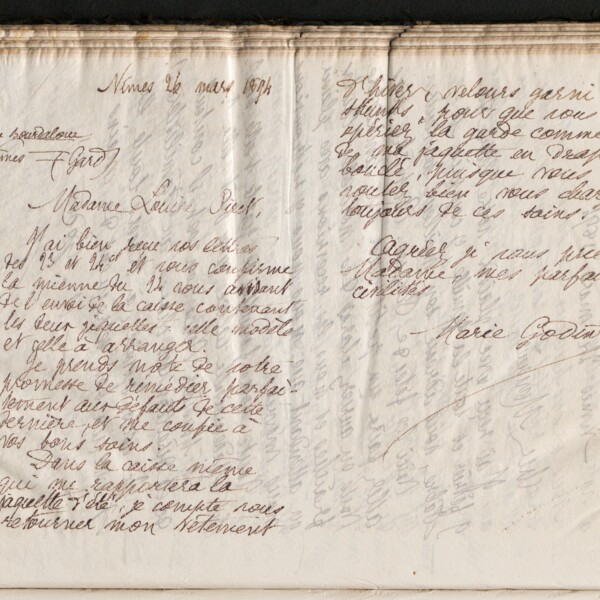 Nîmes 26 mars 1894
Bourdaloue
(Gard)
Madame Louise
J'ai bien reçu vos lettres
des 23 et 24 ct et vous confirme
la mienne du 24 vous avisant
de l'envoi de la caisse contenant
les deux jaquettes: celle modèle
et celle à arranger.
Je prends note de votre
promesse de remédier parfai-
tement aux défauts de cette
dernière et me confie à
vos bons soins.
Dans la caisse même
qui me rapportera la
jaquette d'été, je compte vous
retourner mon vêtement
d'hiver, velours garni
skunks, pour que vous
la garde comme
de ma jaquette en drap
bouclé, puisque vous
voulez bien vous char
toujours de ces soins.
Agréez je vous prie
Madame, mes parfai
civilités
Marie Godin